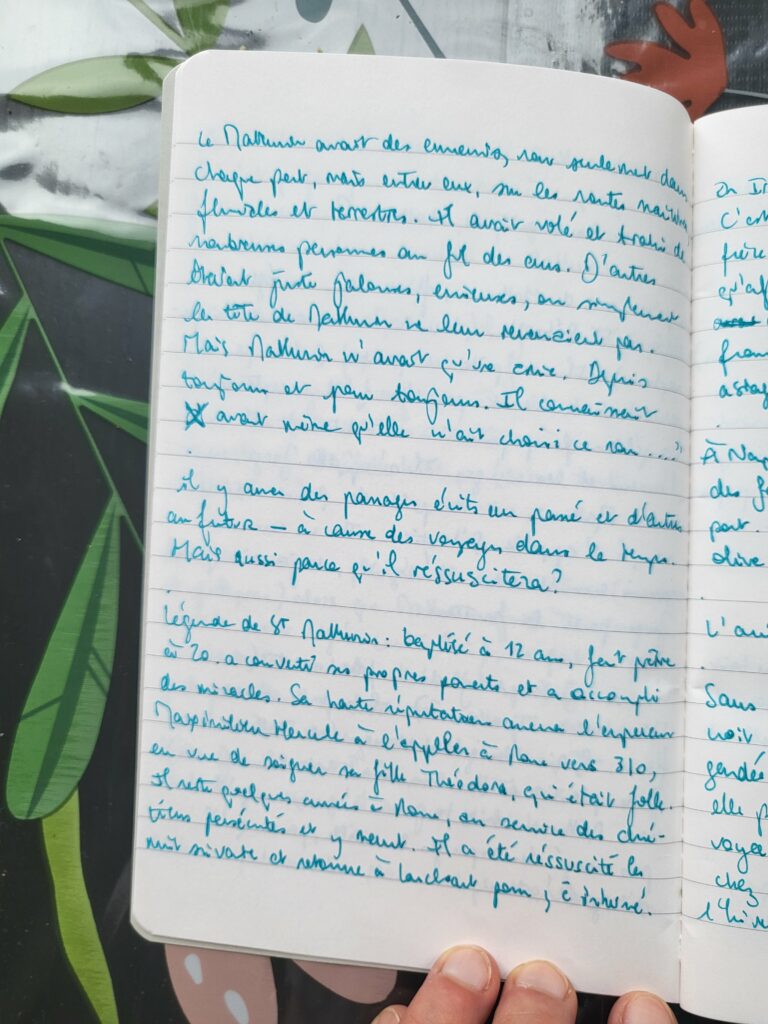 Le Mathurin avait des ennemis, non seulement dans
chaque port, mais entre eux, sur les routes maritimes,
fluviales et terrestres. Il avait volé et trahi de
nombreuses personnes au fil des ans. D'autres
étaient juste jalouses, envieuses, ou simplement
la tête de Mathurin ne leur revenait pas.
Mais Mathurin n'avait qu'une amie. Depuis
toujours et pour toujours. Il connaissait
X avant même qu'elle n'ait choisi ce nom...."
.
il y aura des passages écrits au passé et d'autres
au futur — à cause des voyages dans le temps.
Mais aussi parce qu'il réssuscitera?
.
Légende de St Mathurin : baptisé à 12 ans, fait prêtre
à 20. a converti ses propres parents et a accompli
des miracles. Sa haute réputation amena l'empereur
Maximilien Hercule à l'appeller à Rome vers 310,
en vue de soigner sa fille Théodora, qui était folle.
Il reste quelques années à Rome, au service des chré-
tiens persécutés et y meurt. Il a été réssuscité la
nuit suivante et retourne à Larchant pour y ê inhumé.
En It
C'est
frère
qu'af
fran
.
À Nap
des
port.
olive
.
L'au
.
Sans
voit
elle p
voyag
chez
l'hive